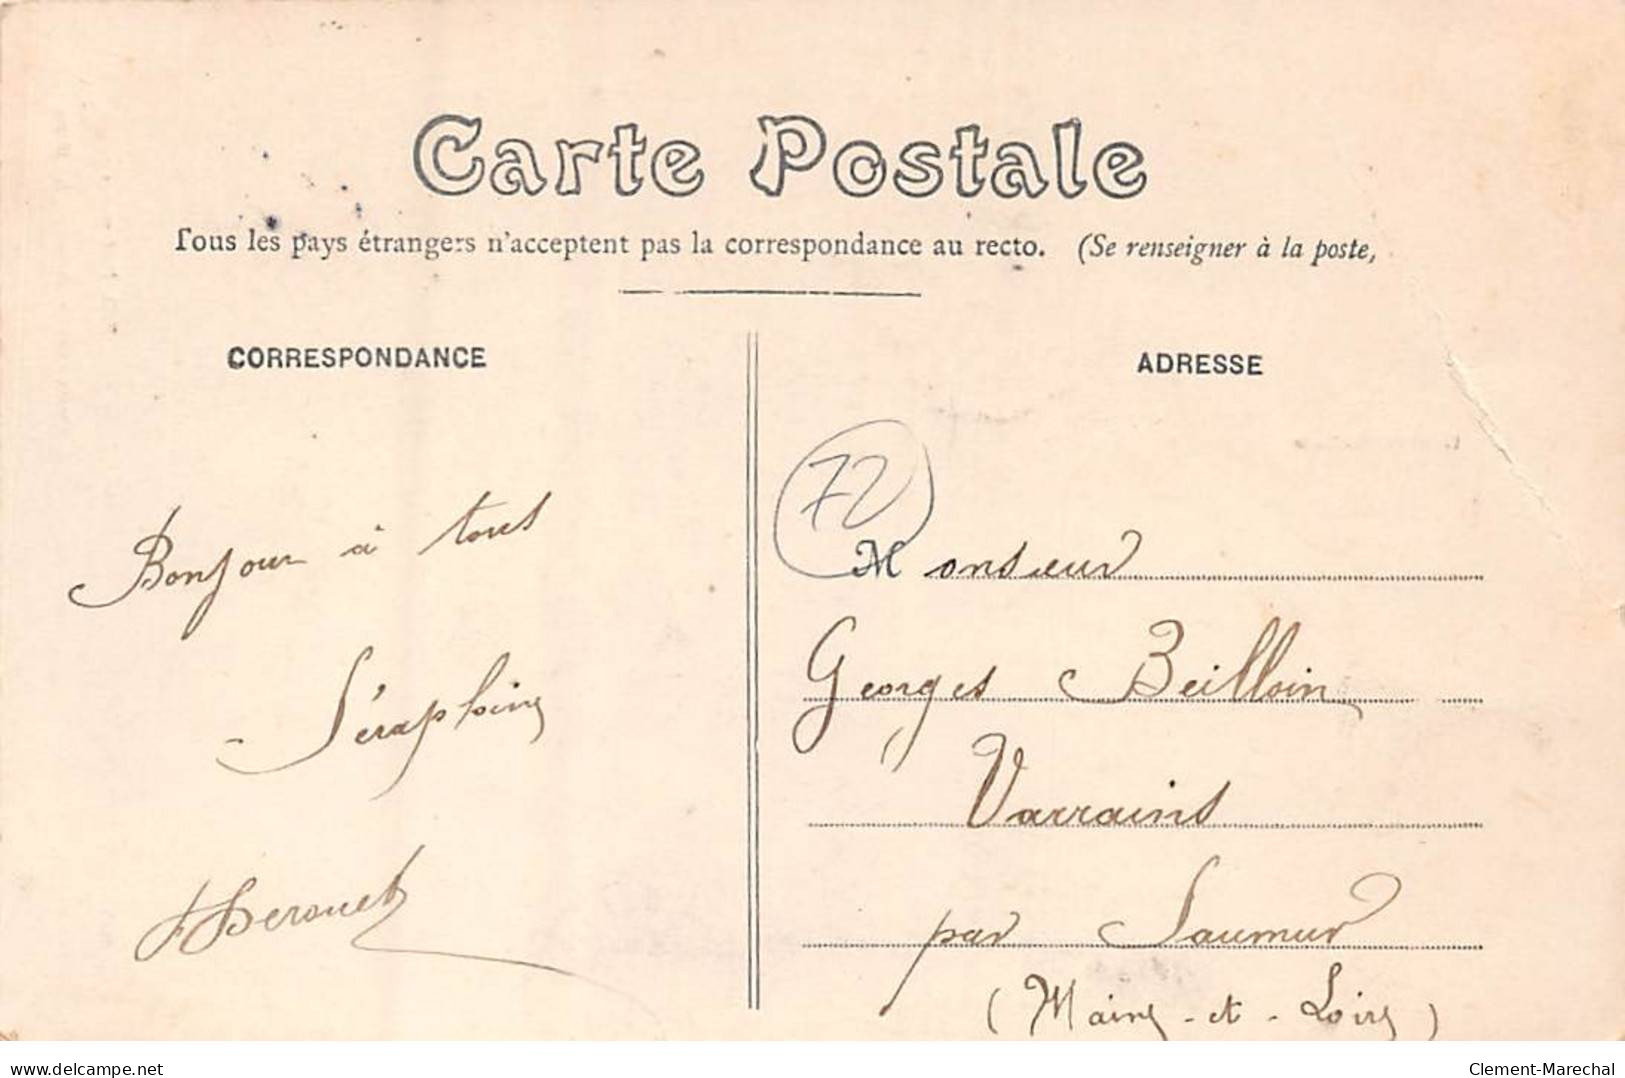 Carte Postale
Tous les pays étrangers n'acceptent pas la correspondance au recto. (Se renseigner à la poste,
CORRESPONDANCE
Bonjour à tous
Séraphine
ADRESSE
72
Monsieur
Georges Beilloin
Varrains
par Saumur
(Maine-et-Loire)
delcampe.net
Clement-Marechal